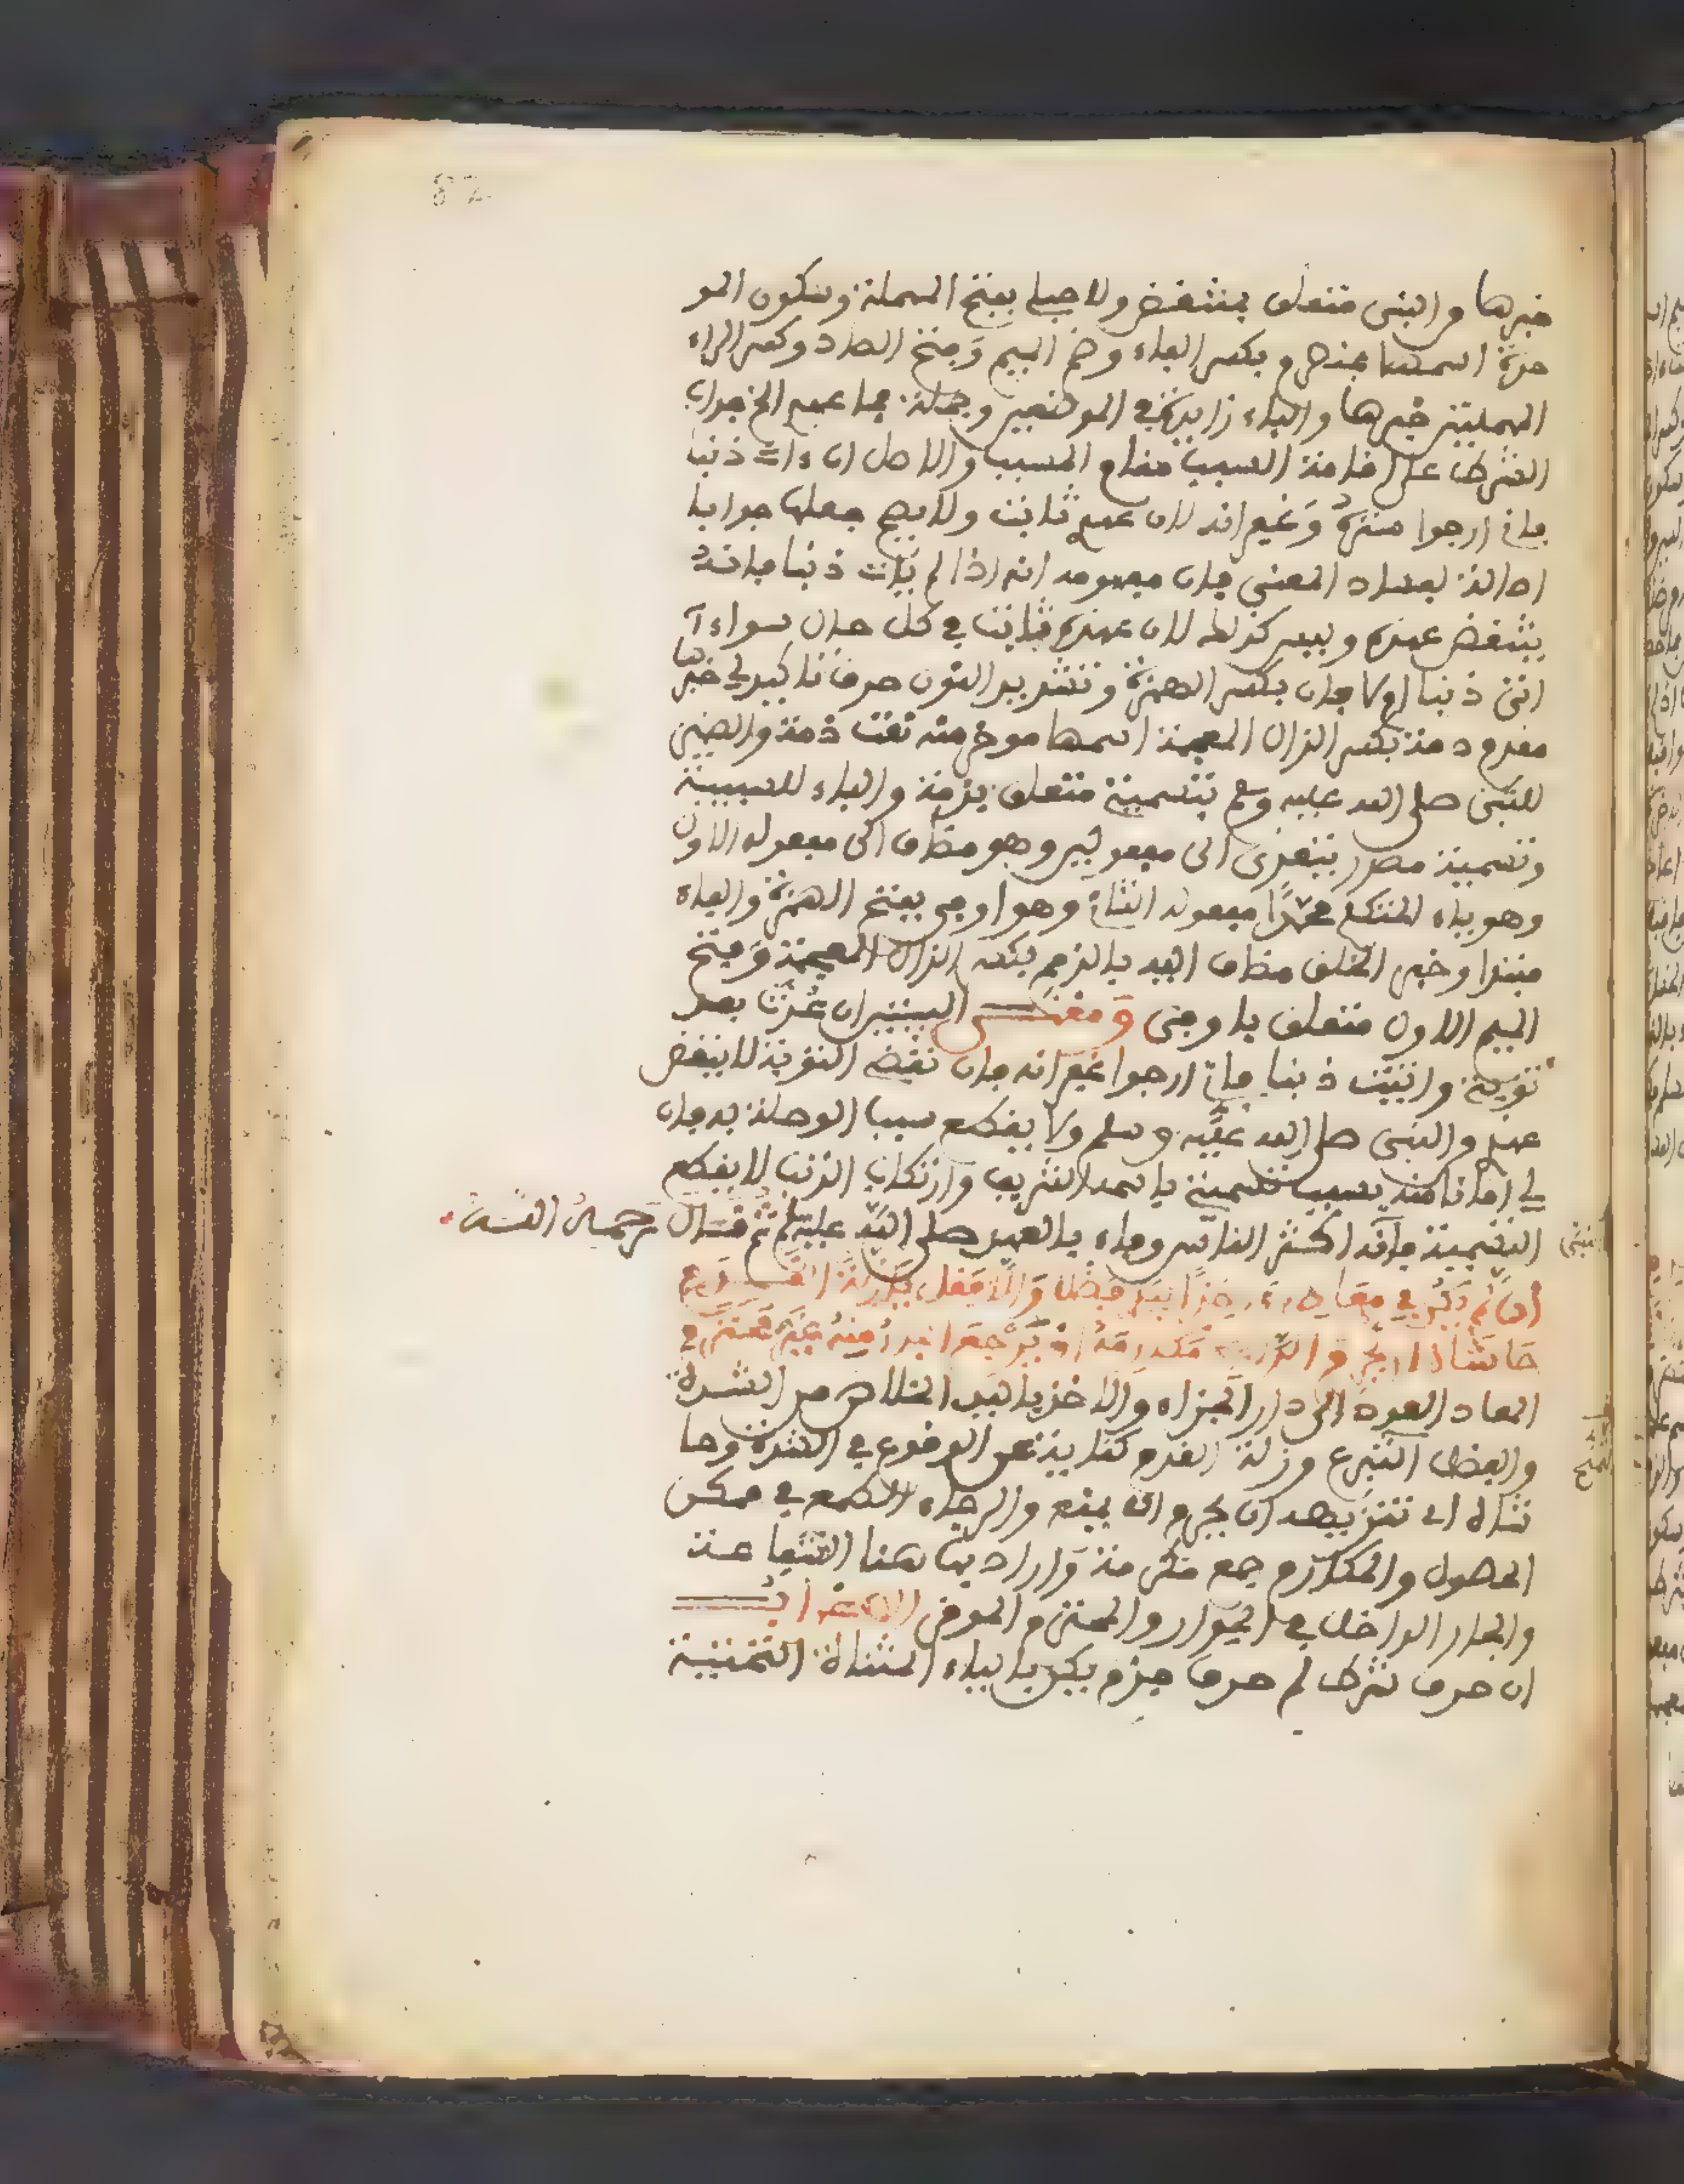 خبرها والنبي متعلق بمنتقض ولا حبلي بفتح المهملة وسكون المو
حدة اسمها بمنصرم بكسر الباء وضم الميم وفتح الصاد وكسر الراء
المهملتين خبرها والباء زايدة في الموضعين وجملة فما عهدي الخ جواب
الشرط على اقامة السبب مقام المسبب والاصل ان ءات ذنبا
فاني ارجوا منه وغفرانه لان عهدي ثابت ولا يصح جعلها جوابا
اصالة لفساد المعنى فان مفهومه انه اذا لم يات ذنبا فانه
ينتقض عهده وليس كذلك لان عهده ثابت في كل حال سواء
اتى ذنبا اولا فان بكسر الهمزة وتشديد النون حرف تاكيد لي خبرها
مقدم ذمة بكسر الذال المعجمة اسمها موخر منه نعت ذمة والضمير
للنبي صلى الله عليه وسلم بتسميتي متعلق بذمة والباء للسببية
وتسمية مصدر يتعدى الى مفعولين وهو مضاف الى مفعوله الاول
وهو ياء المتكلم محمدا مفعوله الثاني وهو اوفى بفتح الهمزة والفاء
مبتدا وخبر الخلق مضاف اليه بالذمم بكسر الذال المعجمة وفتح
الميم الاولى متعلق باوفى ومعنى البيتين ان عدت بعد
توبتي واتيت ذنبا فاني ارجوا غفرانه فان نقض التوبة لا ينقض
عهدي والنبي صلى الله عليه وسلم ولا يقطع سبب الوصلة به فان
لي امانا منه بسبب تسميتي باسمه الشريف وارتكاب الذنب لا يقطع
التسمية فانه اكثر الناس وفاء بالعهد صلى الله عليه وسلم ثم قال رحمه الله
ان لم يكن في معادي ءاخذا بيدي فضلا والا فقل يا زلة القدم
حاشاه ان يحرم الراجي مكارمه او يرجع الجار منه غير محترم
المعاد العود الى دار الجزاء والاخذ باليد الخلاص من الشدة
والفضل التبرع وزلة القدم كناية عن الوقوع في الشدة وحا
شاه اي تنزيهه ان يحرم ان يمنع والرجاء الطمع في ممكن
الحصول والمكارم جمع مكرمة واراد بها هنا الشفاعة
والجار الداخل في الجوار والمحترم الموفى الاعراب
ان حرف شرط لم حرف جزم يكن بالياء المثناة التحتية